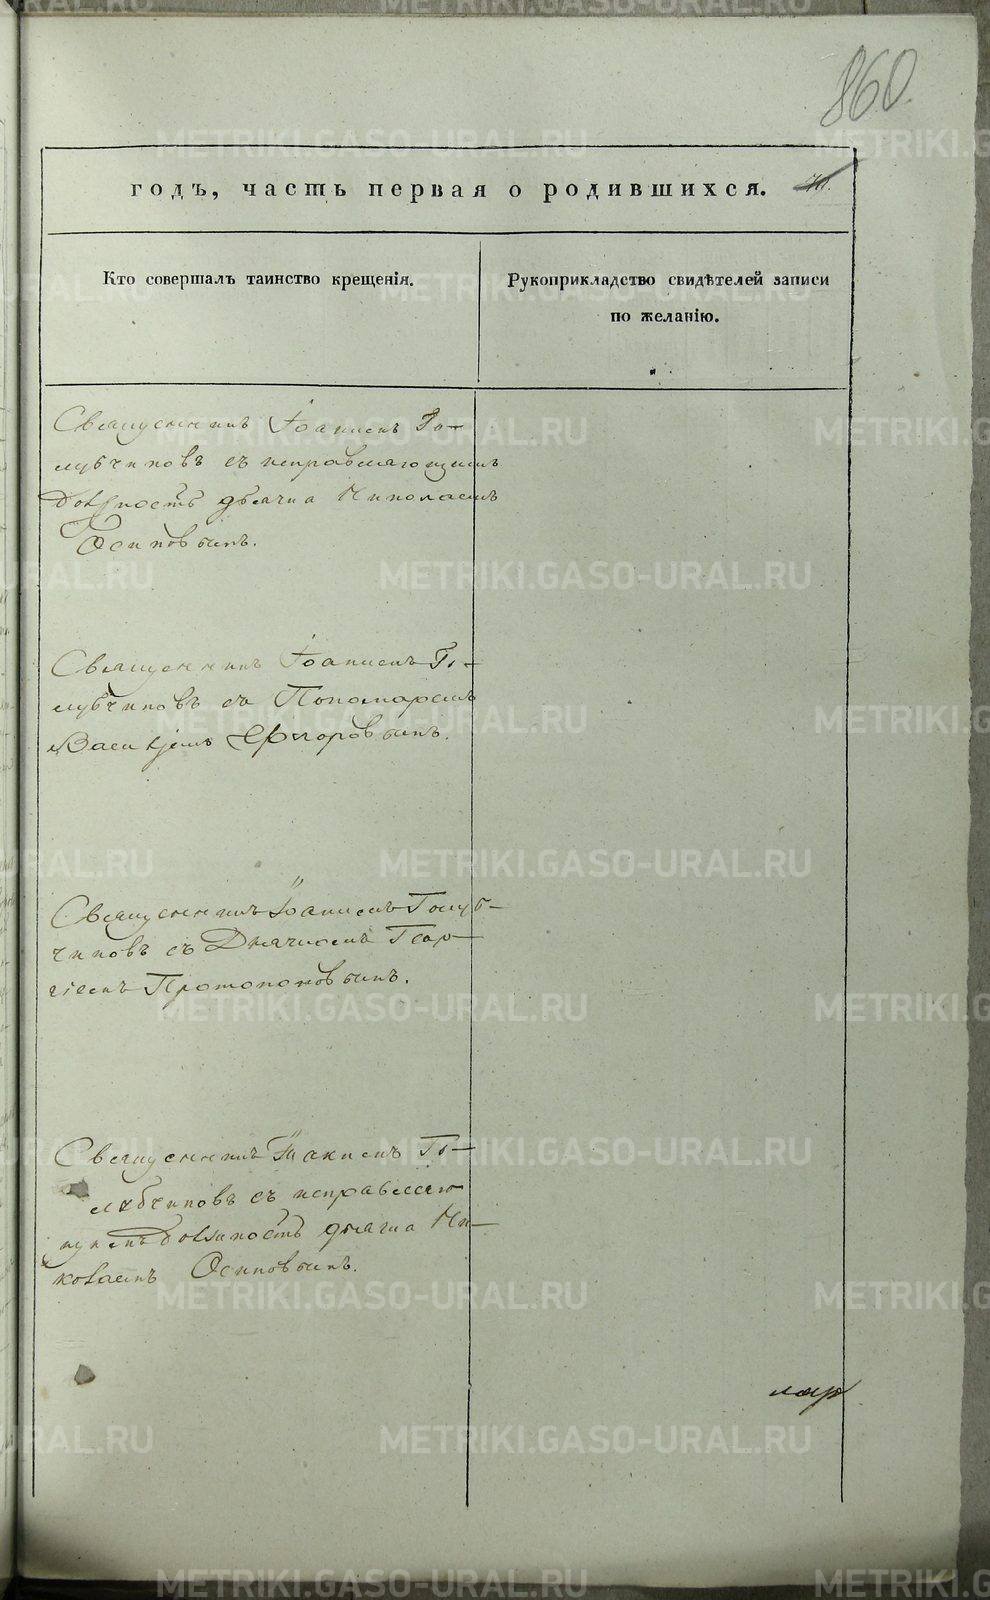 860.
годъ, часть первая о родившихся.
Кто совершалъ таинство крещенія.
Рукоприкладство свидѣтелей записи
по желанію.
Священникъ Іоаннъ Го-
лубчиковъ съ исправляющимъ
должность дьячка Николаемъ
Осиповымъ.
Священникъ Іоаннъ Го-
лубчиковъ съ Пономаремъ
Василіемъ Ѳедоровымъ.
Священникъ Іоаннъ Голуб-
чиковъ съ Дьячкомъ Геор-
гіемъ Протопоповымъ.
Священникъ Іоаннъ Го-
лубчиковъ съ исправляю-
щимъ должность дьячка Ни-
колаемъ Осиповымъ.
METRIKI.GASO-URAL.RU